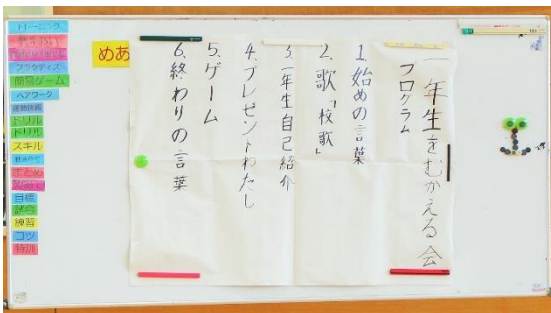 一年生をむかえる会
プログラム
1. 始めの言葉
2. 歌「校歌」
3. 一年生自己紹介
4. プレゼントわたし
5. ゲーム
6. 終わりの言葉
めあ
トレーニング
プラクティス
簡易ゲーム
ペアワーク
ドリル
ドリル
スキル
まとめ
目標
試合
練習
コツ
特訓